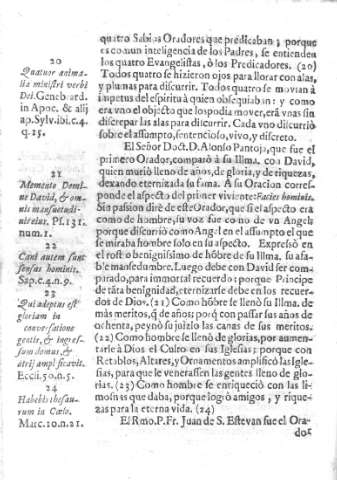 20
Quatuor anima-
lia ministri verbi
Dei. Genebrard.
in Apoc. & alij
ap. Sylv. ibi. c. 4.
q. 15.
21
Memento Domi-
ne David, & om-
nis mansuetudi-
nis eius. Ps. 131.
num. 1.
22
Cani autem sunt
sensus hominis.
Sap. c. 4. n. 9.
23
Qui adeptus est
gloriam in
conversatione
gentis, & ingres-
sum domus, &
atrij amplificavit.
Eccli. 50. n. 5.
24
Habebis thesau-
rum in Cœlo.
Marc. 10. n. 21.
quatro Sabios Oradores que predicaban; porque
es comun inteligencia de los Padres, se entienden
los quatro Evangelistas, ò los Predicadores. (20)
Todos quatro se hizieron ojos para llorar con alas,
y plumas para discurrir. Todos quatro se movian à
impetus del espiritu à quien obsequiaban: y como
era vno el objecto que los podia mover, erã vnas sin
discrepar las alas para discurrir. Cada vno discurriò
sobre el assumpto, sentencioso, vivo, y discreto.
El Señor Doct. D. Alonso Pantoja, que fue el
primero Orador, comparò à su Illma. con David,
quien muriò lleno de años, de gloria, y de riquezas,
dexando eternizada su fama. A su Oracion corres-
ponde el aspecto del primer viviente: Facies hominis.
Sin passion dirè de este Orador, que si el aspecto era
como de hombre, su voz fue como de vn Angel;
porque discurriò como Angel en el assumpto el que
se miraba hombre solo en su aspecto. Expressò en
el rostro benignissimo de hõbre de su Illma. su afa-
ble mansedumbre. Luego debe con David ser com-
parado, para immortal recuerdo: porque Principe
de tãta benignidad, eternizarse debe en los recuer-
dos de Dios. (21) Como hõbre se llenò su Illma. de
màs meritos, q̃ de años; porq̃ con passar sus años de
ochenta, peynò su juizio las canas de sus meritos.
(22) Como hombre se llenò de gloria, por aumen-
tarle à Dios el Culto en sus Iglesias; porque con
Retablos, Altares, y Ornamentos amplificò las Igle-
sias, para que le venerassen las gentes lleno de glo-
rias. (23) Como hombre se enriqueciò con las li-
mosnas que daba, porque logrò amigos, y rique-
zas para la eterna vida. (24)
El Rmo. P. Fr. Juan de S. Estevan fue el Ora-
dor